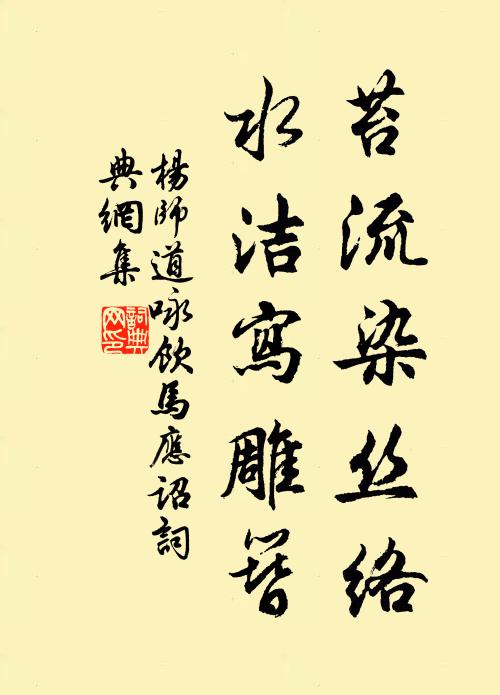 苔流染丝络
水洁寫雕簪
楊師道咏飲馬應詔詞
典網集
詞典
网印